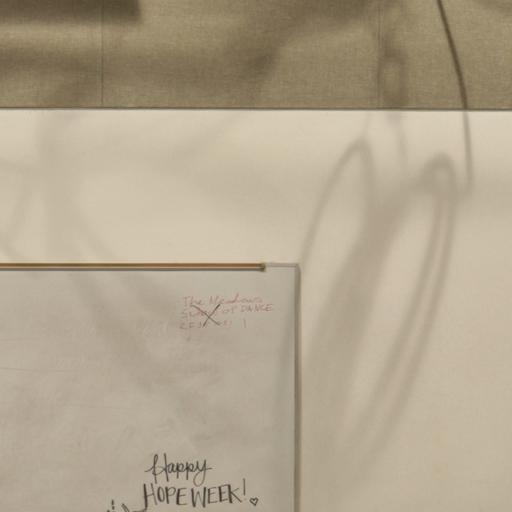 The Meadows
OF DANCE
Happy
HOPE WEEK!